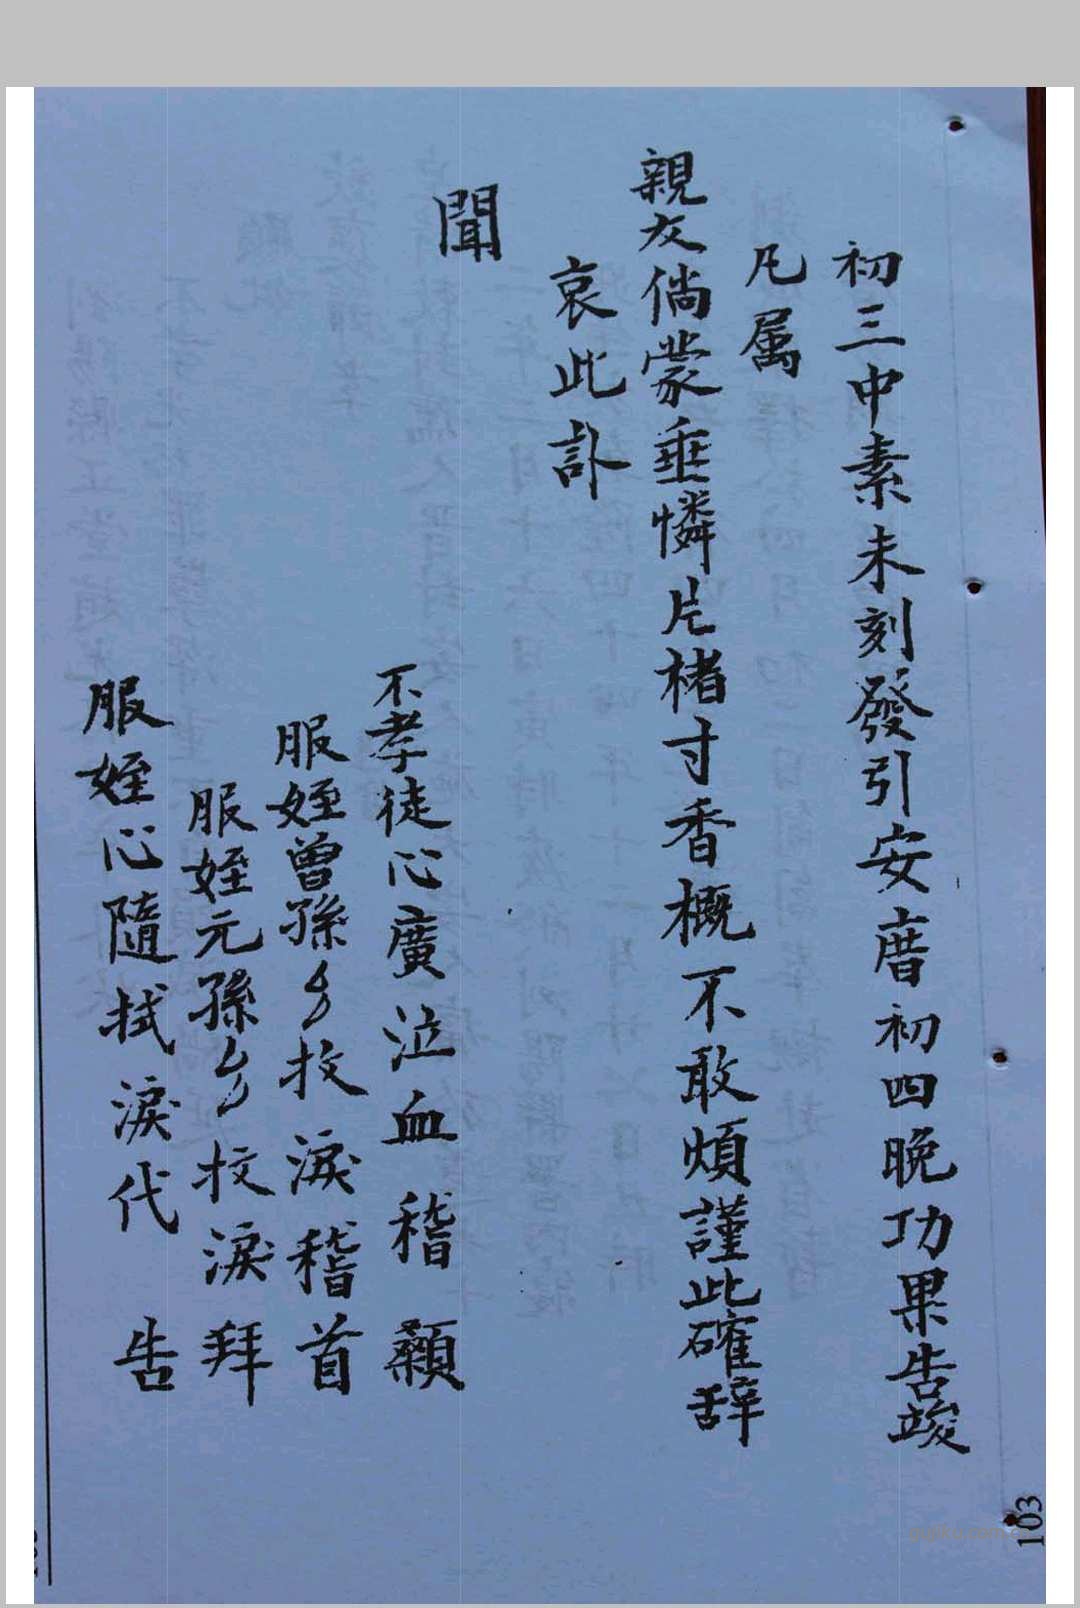 初三中素未刻發引安厝初四晚功果告竣
凡属
親友倘蒙垂憐片楮寸香概不敢煩謹此確辞
哀此訃
聞
不孝徒心廣泣血稽顙
服姪曾孫 技淚稽首
服姪元孫 技淚拜
服姪心隨拭淚代告
103